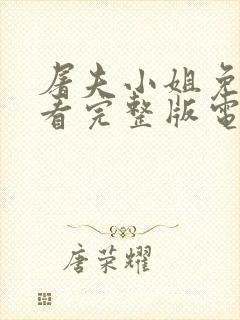 屠夫小姐免
看完整版電
唐荣耀